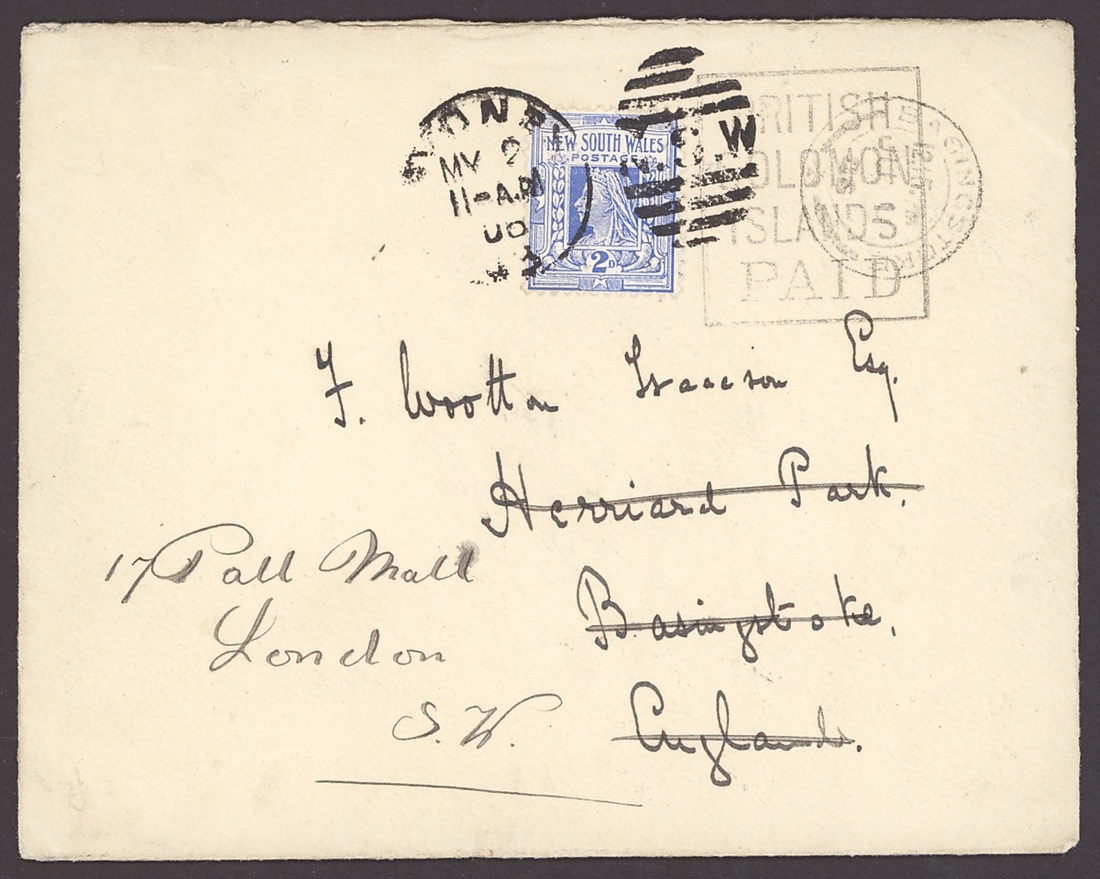 SYDNEY
MY 2
11-A.M
06
N.S.W
NEW SOUTH WALES
POSTAGE
2D
BRITISH
SOLOMON
ISLANDS
PAID
BASINGSTOKE
F. Wootton Isaacson Esq.
Herriard Park.
Basingstoke,
England.
17 Pall Mall
London
S.W.